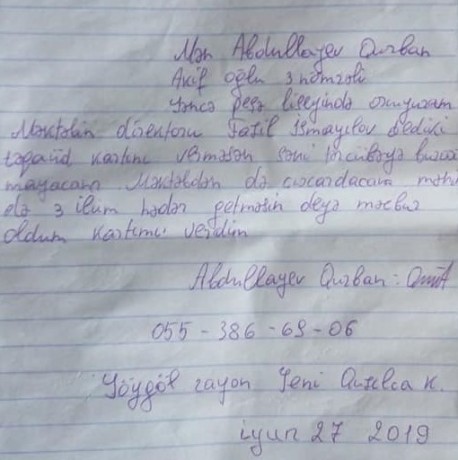 Mən Abdullayev Qurban
Akif oğlu 3 nömrəli
Gəncə peşə liseyində oxuyuram
Məktəbin direktoru Fazil İsmayılov dediki
təqaüd kartını verməsən səni təcrübəyə burax
mayacam Məktəbdən də cıxardacam məni
də 3 ilim hədər getməsin deyə məcbur
oldum kartımı verdim
Abdullayev Qurban:
055-386-69-06
Göygöl rayon Yeni Qızılca k.
iyun 27 2019